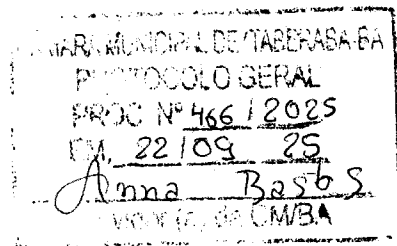 CÂMARA MUNICIPAL DE ITABERABA-BA
PROTOCOLO GERAL
PROC Nº 466 / 2025
EM, 22 / 09 25
Anna Bastos
CM/BA